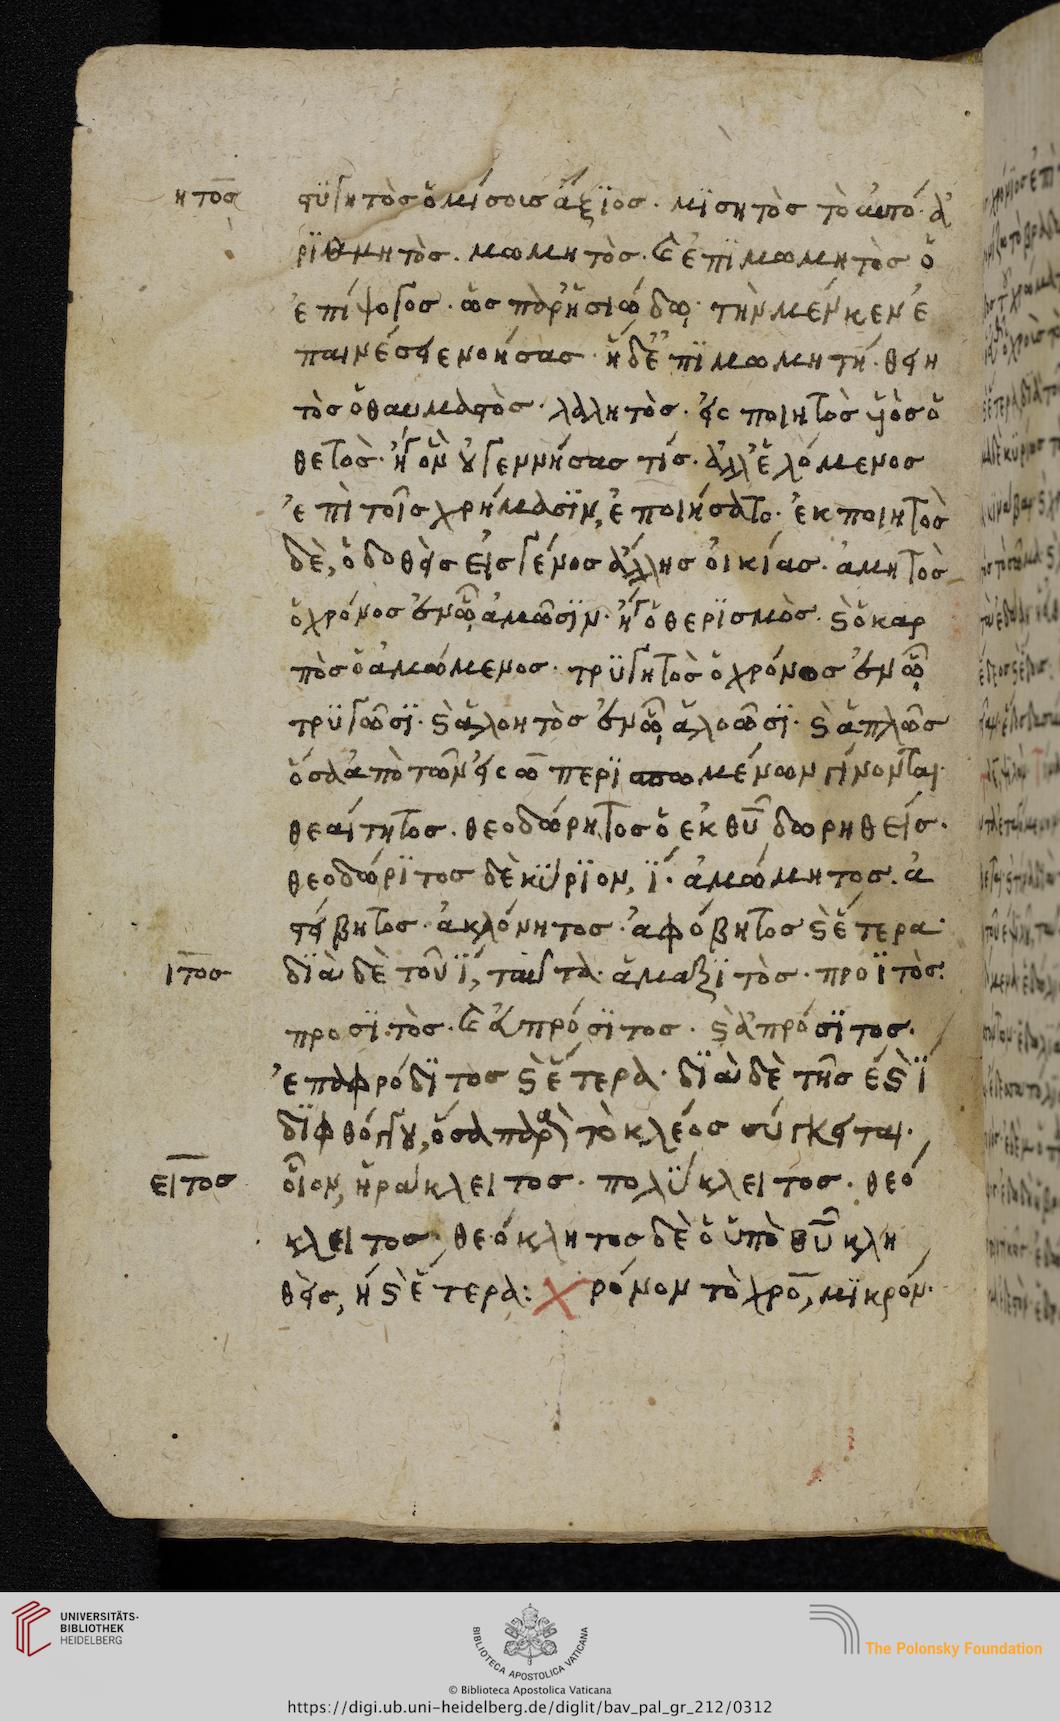 ητος
στϋγητὸς ὁ μίσους ἄξϊος. μϊσητὸς τὸ αὐτό. ἀ
ρϊθμητὸς. μωμητὸς. καὶ ἐπϊμωμητὸς ὁ
ἐπίψογος. ὡς παρ' ἡσιόδω. τὴν μέν κεν ἐ
παινέσσειε νοήσας. ἡ δ' ἐπϊμωμητή.
τὸς ὁ θαυμαστὸς. λαλητὸς. ποιητὸς υἱὸς ὁ
θετὸς. ἤγουν οὐ γεννήσας τίς. ἀλλ' ἑλόμενος
ἐπὶ τοῖς χρήμασϊν, ἐποιήσατο. ἐκποιητὸς
δὲ, ὁ δοθεὶς εἰς γένος ἄλλης οἰκίας. ἀμητὸς
ὁ χρόνος ἐν ᾧ ἀμῶσϊν. ἢ ὁ θερϊσμὸς. καὶ ὁ καρ
πὸς ὁ ἀμώμενος. τρϋγητὸς ὁ χρόνος ἐν ᾧ
τρϋγῶσϊ. καὶ ἁλοητὸς ἐν ᾧ ἁλοῶσϊ. καὶ ἁπλῶς
ὅσα ἀπὸ τῶν εἰς ῶ περϊσπωμένων γίνονται.
θεαίτητος. θεοδώρητος ὁ ἐκ θῡ δωρηθείς.
θεοδώρϊτος δὲ κύρϊον, ϊ. ἀμώμητος. ἀ
στίβητος. ἀκλόνητος. ἀφόβητος καὶ ἕτερα.
ιτος
δϊὰ δὲ τοῦ ϊ, ταῦτα. ἁμαξϊτὸς. προϊτὸς.
προσϊτὸς. καὶ ἀπρόσϊτος. καὶ ἀπρόσϊτος.
ἐπαφρόδϊτος καὶ ἕτερα. δϊὰ δὲ τῆς ε καὶ ϊ
δϊφθόγγου, ὅσα παρὰ τὸ κλέος σύγκειται.
ειτος
οἷον, ἡράκλειτος. πολύκλειτος. θεό
κλειτος. θεόκλητος δὲ ὁ ὑπὸ θῡ κλη
θεὶς, ἢ καὶ ἕτερα: Χρόνον τὸ χρο, μϊκρόν.
UNIVERSITÄTS-
BIBLIOTHEK
HEIDELBERG
BIBLIOTECA APOSTOLICA VATICANA
The Polonsky Foundation
© Biblioteca Apostolica Vaticana
https://digi.ub.uni-heidelberg.de/diglit/bav_pal_gr_212/0312